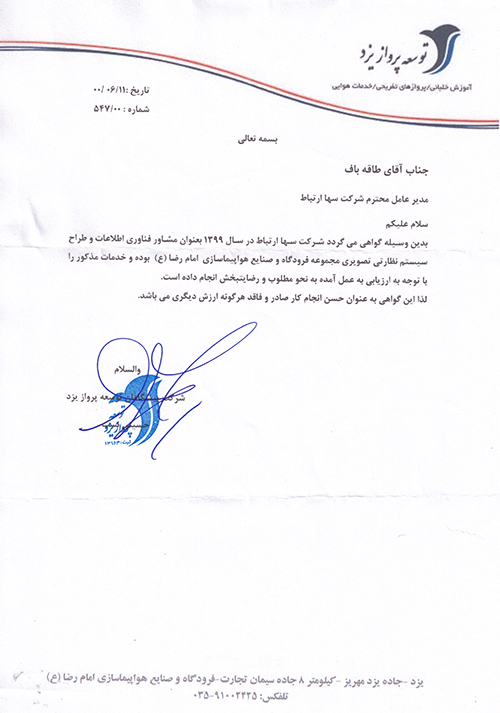 توسعه پرواز یزد
آموزش خلبانی/پروازهای تفریحی/خدمات هوایی
تاریخ :۰۰/۰۶/۱۱
شماره : ۵۴۷/۰۰
بسمه تعالی
جناب آقای طاقه باف
مدیر عامل محترم شرکت سها ارتباط
سلام علیکم
بدین وسیله گواهی می گردد شرکت سها ارتباط در سال ۱۳۹۹ بعنوان مشاور فناوری اطلاعات و طراح
سیستم نظارتی تصویری مجموعه فرودگاه و صنایع هواپیماسازی امام رضا (ع) بوده و خدمات مذکور را
با توجه به ارزیابی به عمل آمده به نحو مطلوب و رضایتبخش انجام داده است.
لذا این گواهی به عنوان حسن انجام کار صادر و فاقد هرگونه ارزش دیگری می باشد.
والسلام
توسعه پرواز یزد
توسعه
پرواز یزد
یزد -جاده یزد مهریز -کیلومتر ۸ جاده سیمان تجارت-فرودگاه و صنایع هواپیماسازی امام رضا (ع)
تلفکس: ۹۱۰۰۲۴۲۵-۰۳۵